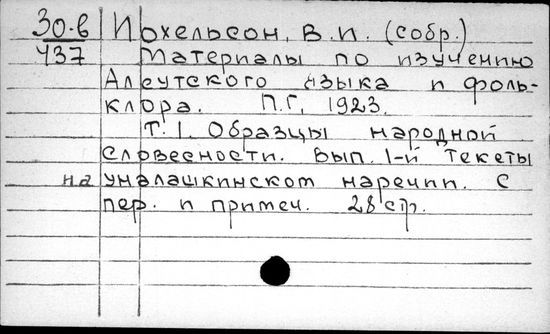 30.6 Иохельсон, В.И. (собр.)
437 Материалы по изучению
Алеутского языка и фоль-
клора. П.Г., 1923.
Т. 1. Образцы народной
словесности. Вып. 1-й Тексты
на уналашкинском наречии. С
пер. и примеч. 28 стр.